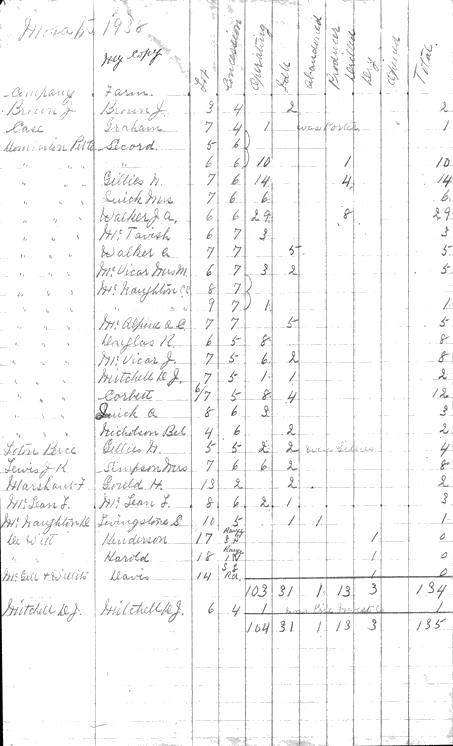 1938
My Copy
Lot Concession Operating Idle Abandoned Producer Drilled Dry Total
Company Farm
Brown J Brown J. 3 4 2 2
Case Graham 7 4 1 1
Secord 5 6
" " " 6 6 10 1 10
" " Gillies N. 7 6 14 4 14
" " Quick Mrs 7 6 6 6
" " Walker J. A. 6 6 29 8 29
" " McTavish 6 7 3 3
" " Walker A 7 7 5 5
" " McVicar Mrs M. 6 7 3 2 5
" " McNaughton 8 7
" " " 9 7 1 1
" " McAlpine D C 7 7 5 5
" " Douglas R. 6 5 8 8
" " McVicar J. 7 5 6 2 8
" " Mitchell D. J. 7 5 1 1 2
" " Corbett 6/7 5 8 4 12
" " Quick A 8 6 3 3
" " Nicholson 4 6 2 2
Gillies N. 5 5 2 2 was Gillies 4
Lewis J R Simpson Mrs 7 6 6 2 8
Marshant F Gould H 13 2 2 2
McLean F. McLean F. 8 6 2 1 3
McNaughton Livingstone S. 10 5 1 1 1
De Witt Henderson 17 Range 1 0
" Harold 18 Range 1 0
McGill & Davis 14 Rd. 1 0
103 31 1 13 3 134
Mitchell D J. Mitchell D. J. 6 4 1 1
104 31 1 13 3 135